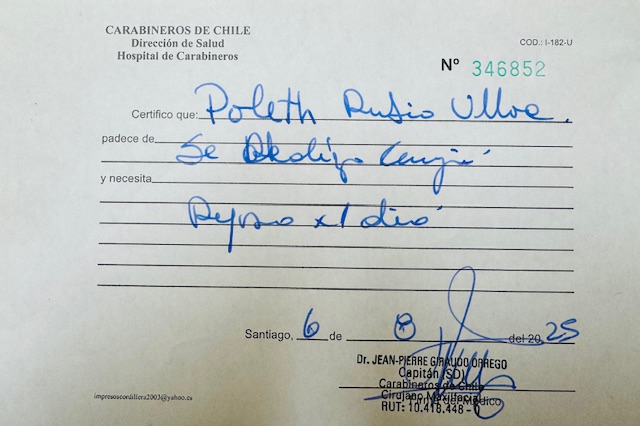 CARABINEROS DE CHILE
Dirección de Salud
Hospital de Carabineros
COD.: I-182-U
Nº 346852
Certifico que: Poleth Rubio Ulloa.
padece de Se
y necesita
Reposo x 1 día
Santiago, 6 de 8 del 2025
Dr. JEAN-PIERRE GIRAUDO ORREGO
Capitán (SD)
Carabineros de Chile
Cirujano Maxilfacial
RUT: 10.418.448-0
impresoscordillera2003@yahoo.es